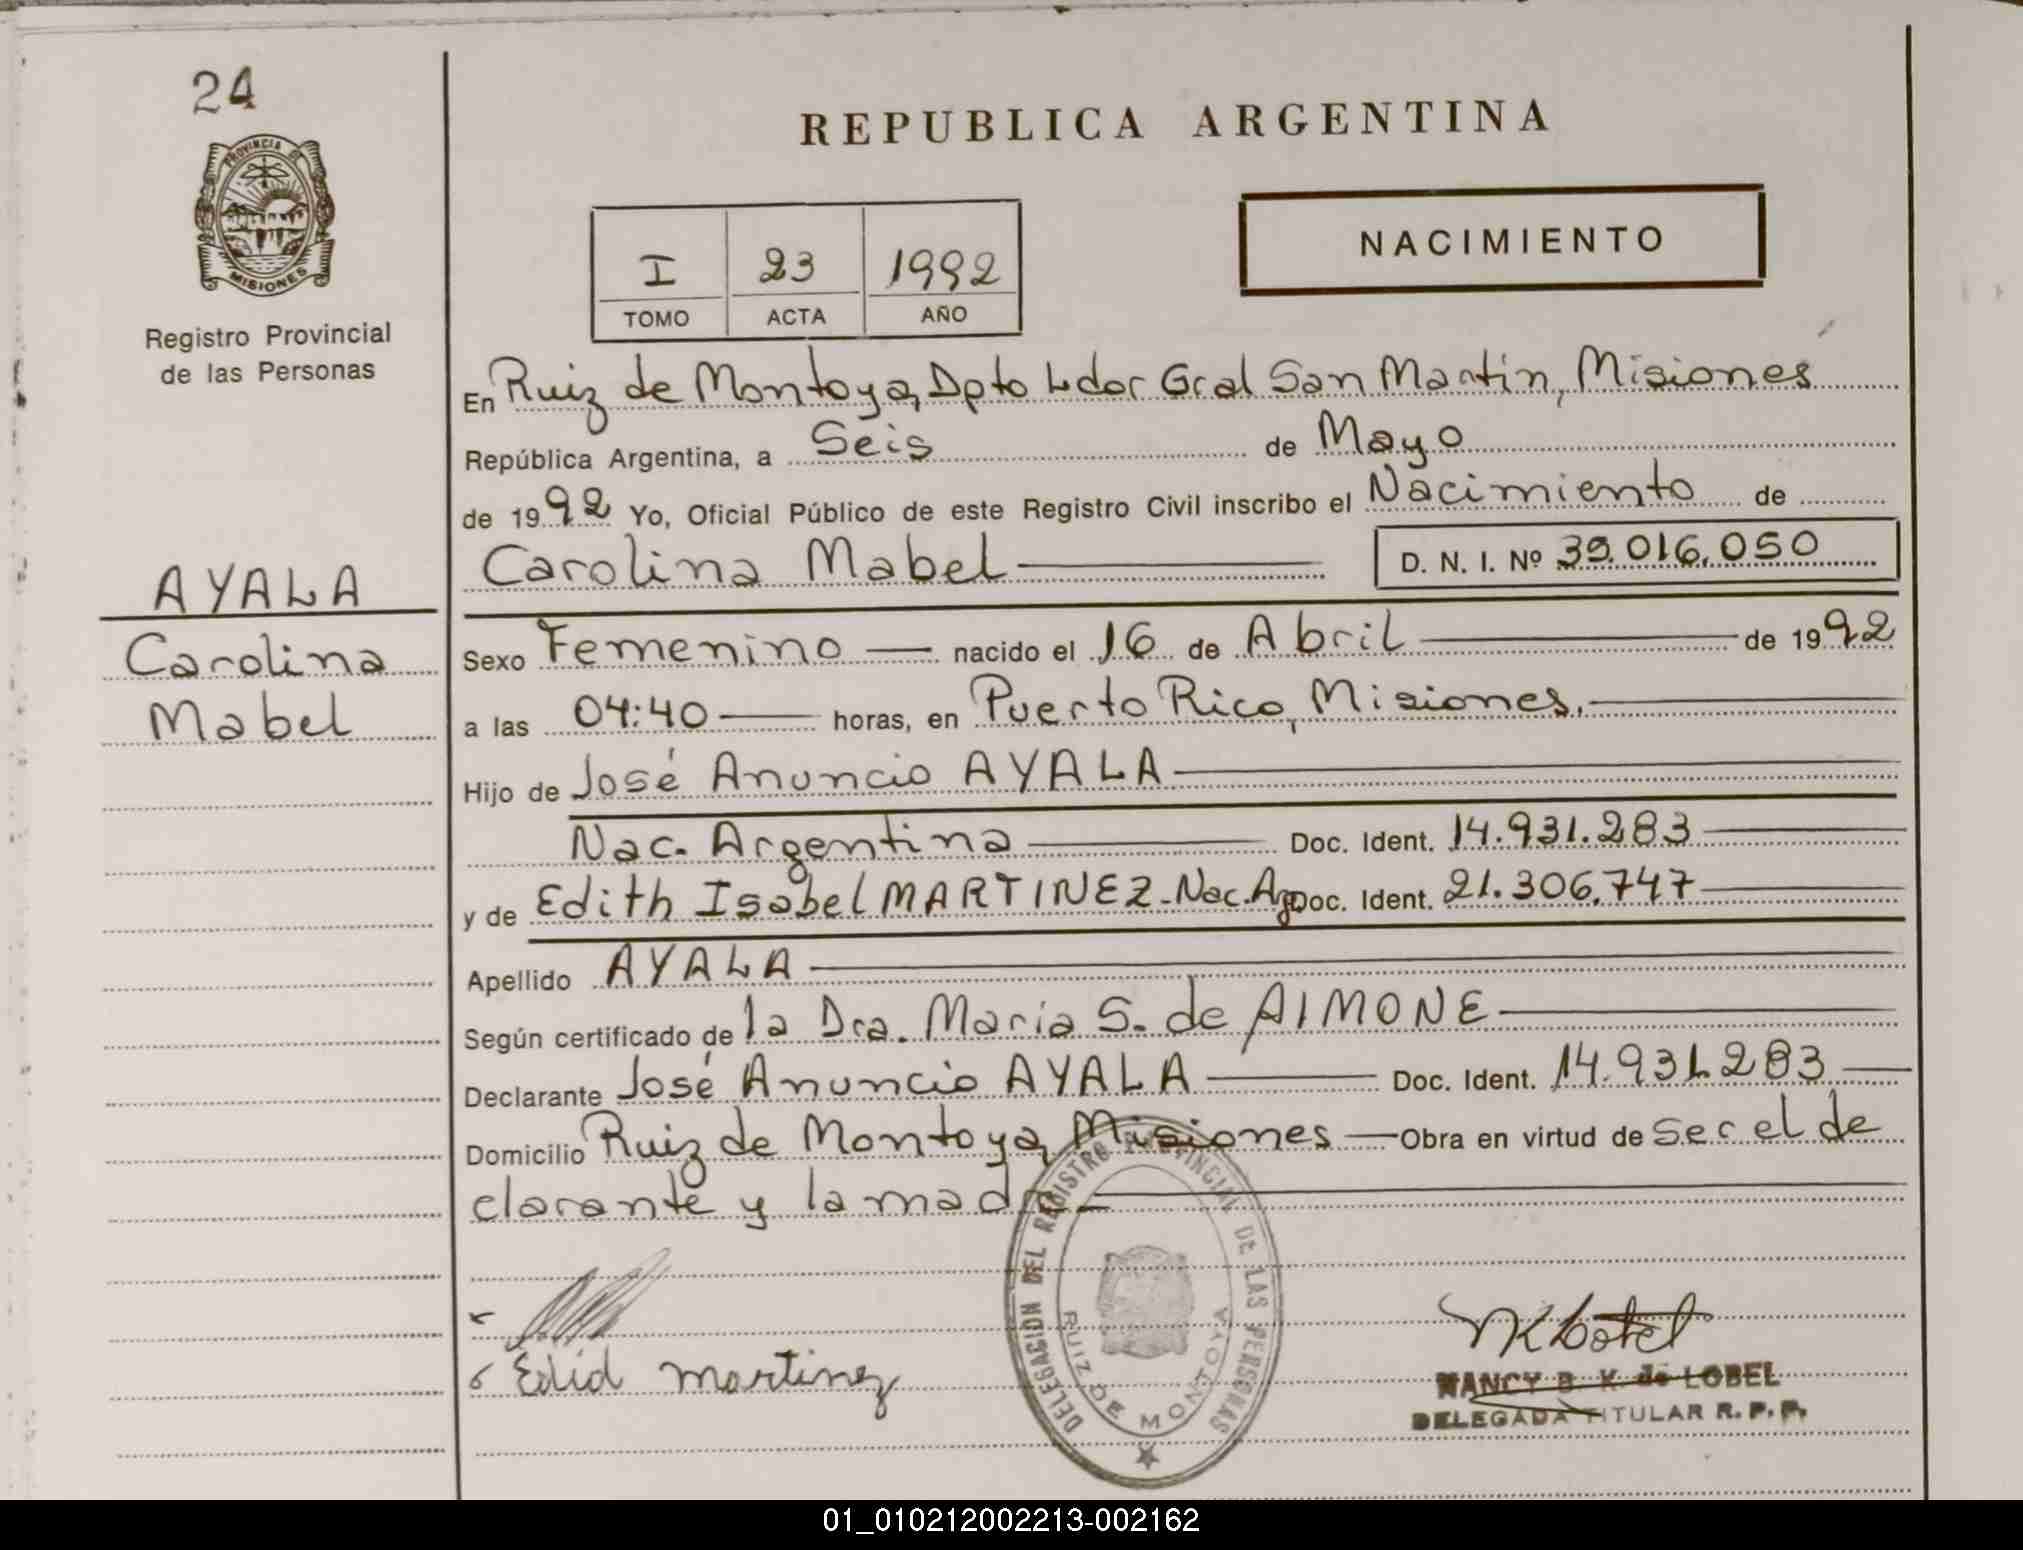 24
PROVINCIA DE
MISIONES
Registro Provincial
de las Personas
AYALA
Carolina
Mabel
REPUBLICA ARGENTINA
I 23 1992
TOMO ACTA AÑO
NACIMIENTO
En Ruiz de Montoya, Dpto Ldor Gral San Martín, Misiones
República Argentina, a Seis de Mayo
de 1992 Yo, Oficial Público de este Registro Civil inscribo el Nacimiento de
Carolina Mabel D. N. I. Nº 39.016.050
Sexo Femenino nacido el 16 de Abril de 1992
a las 04:40 horas, en Puerto Rico, Misiones.
Hijo de José Anuncio AYALA
Nac. Argentina Doc. Ident. 14.931.283
y de Edith Isabel MARTINEZ-Nac. Arg. Doc. Ident. 21.306.747
Apellido AYALA
Según certificado de la Dra. María S. de AIMONE
Declarante José Anuncio AYALA Doc. Ident. 14.931.283
Domicilio Ruiz de Montoya, Misiones Obra en virtud de ser el de
clarante y la madre
DELEGACION DEL REGISTRO PROVINCIAL DE LAS PERSONAS
RUIZ DE MONTOYA
Edid martinez
NANCY B. K. de LOBEL
DELEGADA TITULAR R. P. P.
01_010212002213-002162